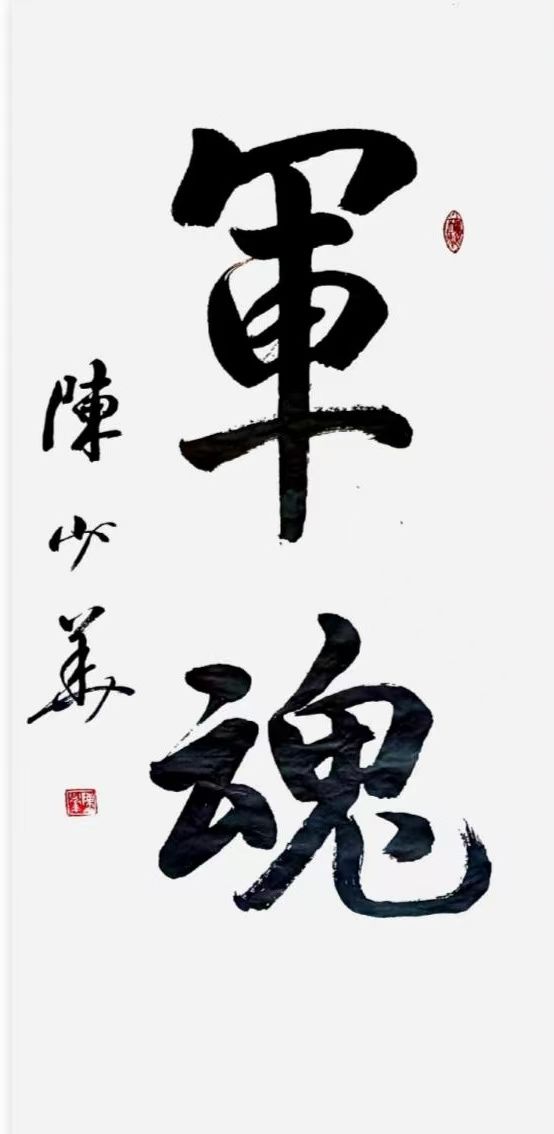 軍魂
陳少華